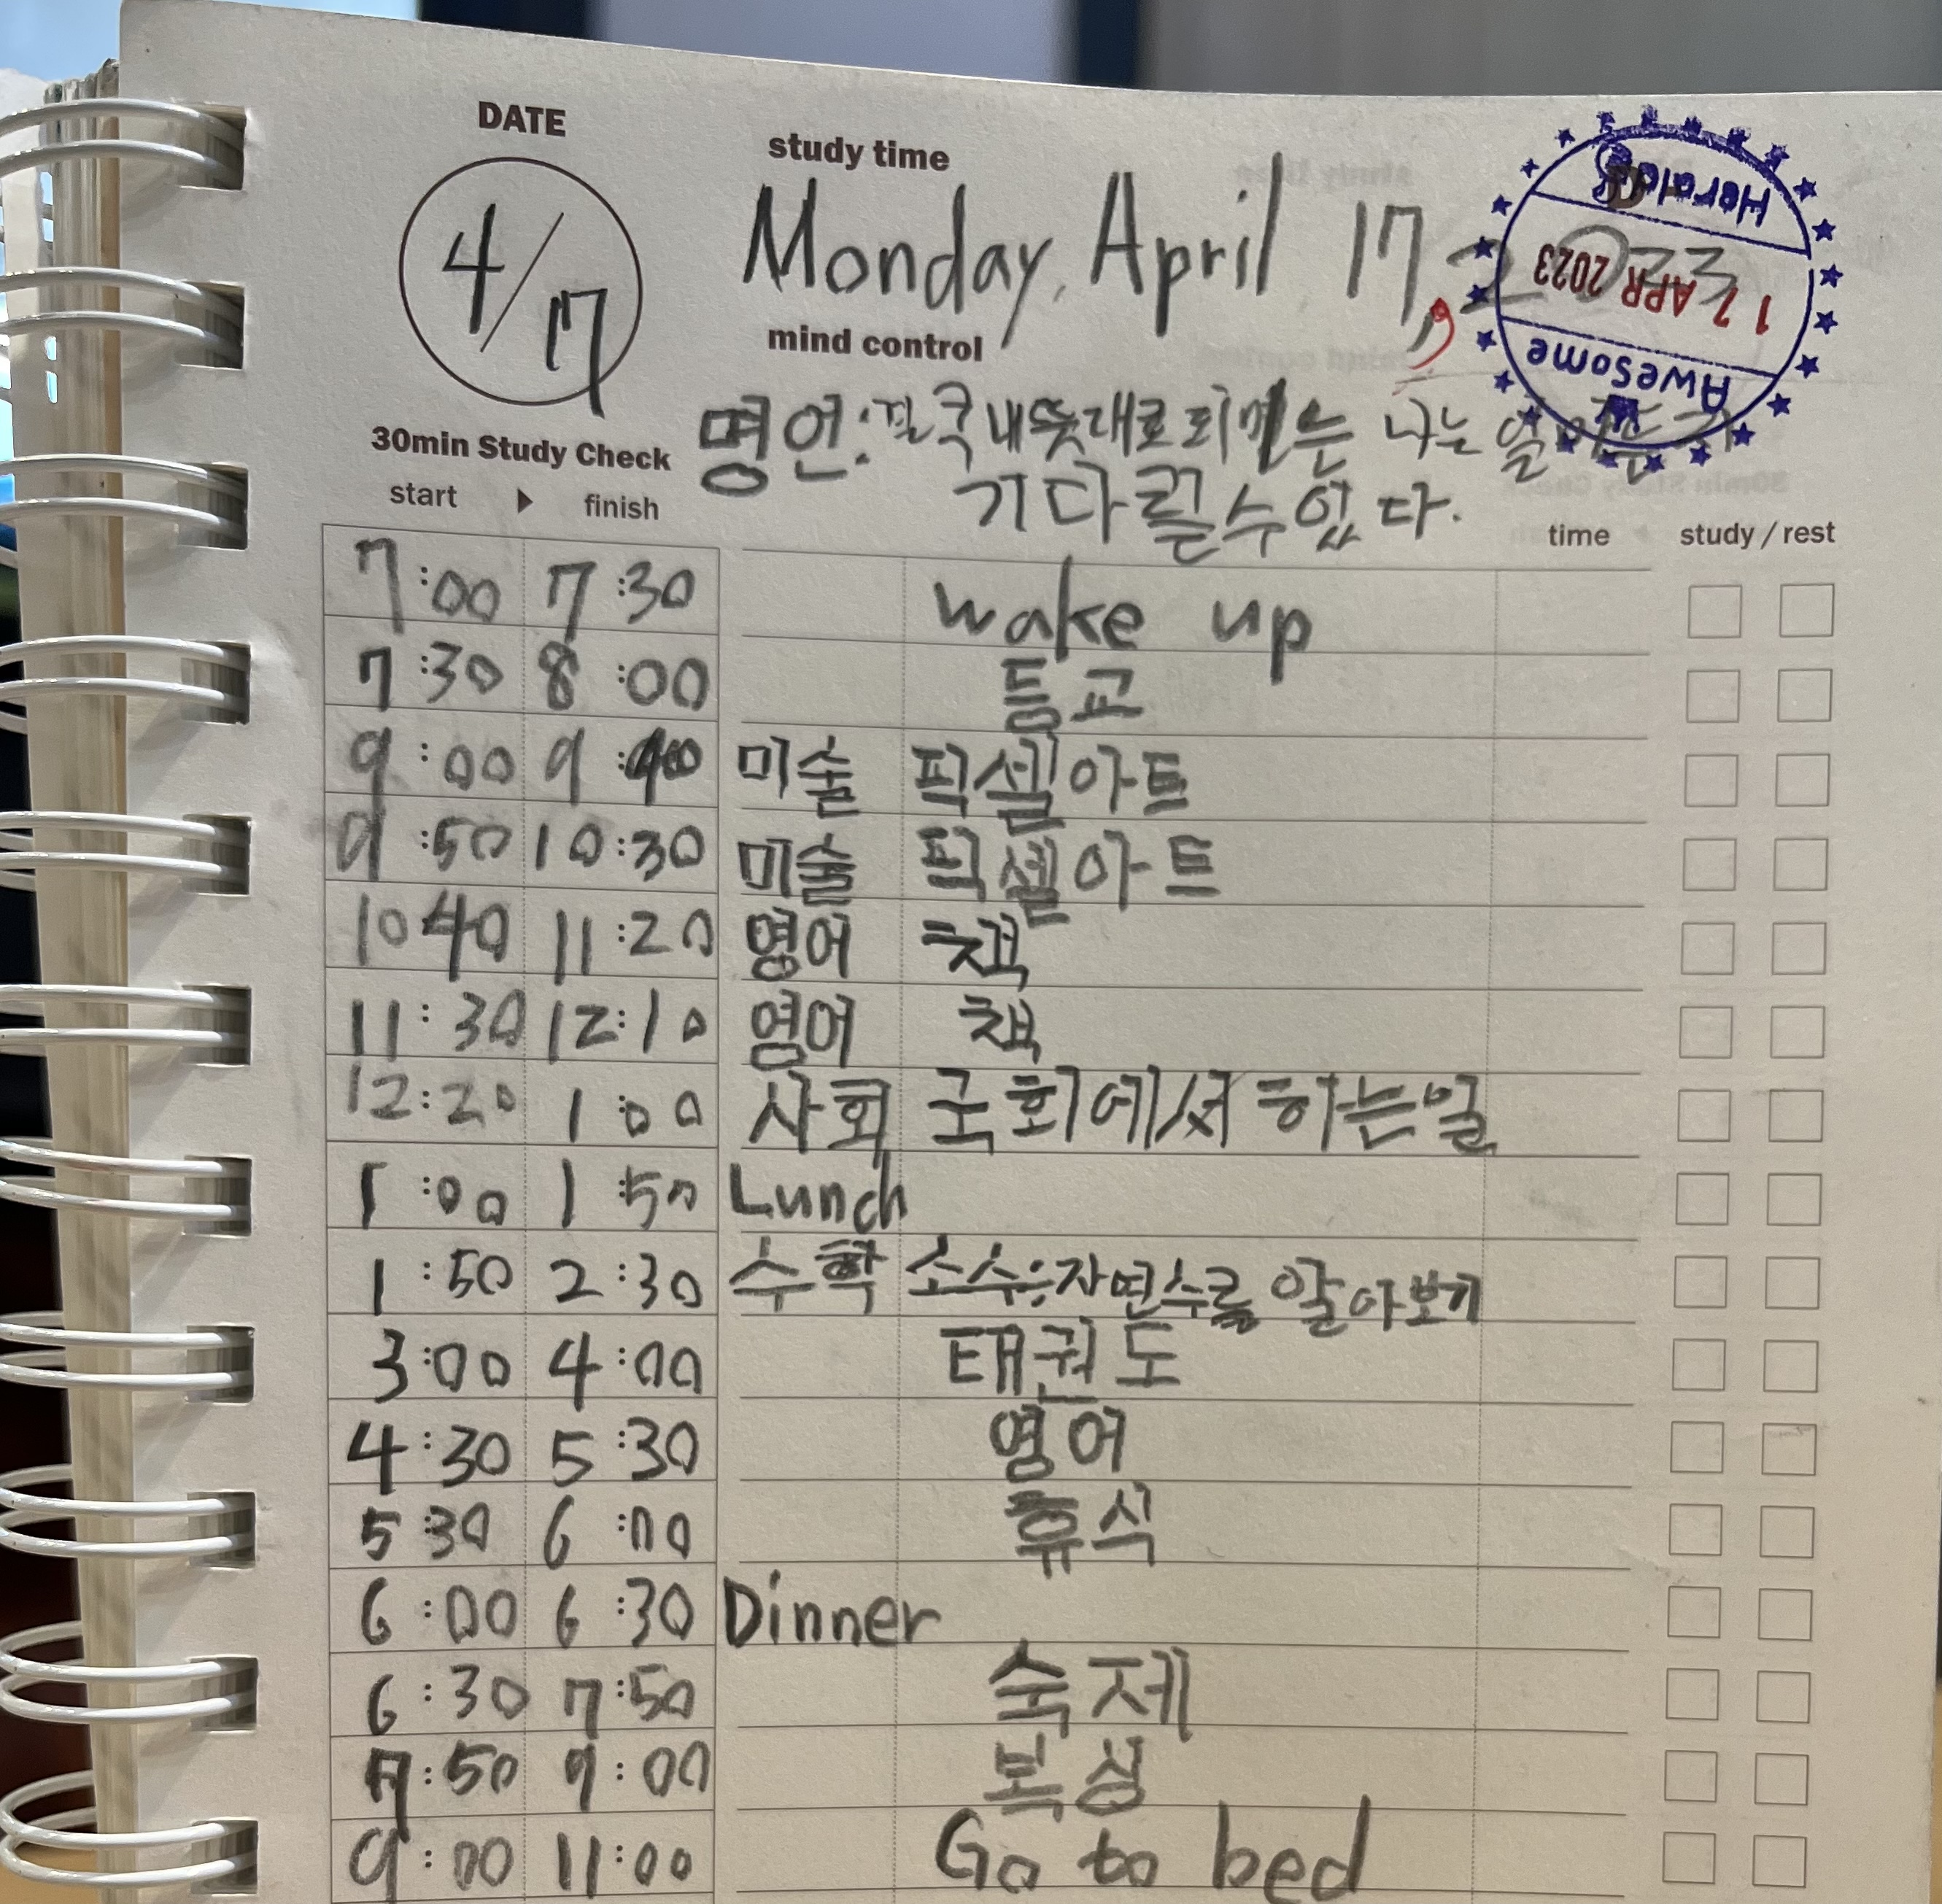 DATE
4/17
study time
Monday, April 17, 2023
Herald
17 APR 2023
Awesome
mind control
명언: 결국 내 뜻대로 되면은 나는
기다릴 수 있다.
30min Study Check
start ▶ finish
time study / rest
7:00 7:30 wake up
7:30 8:00 등교
9:00 9:40 미술 픽셀아트
9:50 10:30 미술 픽셀아트
10 40 11:20 영어 책
11:30 12:10 영어 책
12:20 1:00 사회 국회에서 하는일
1:00 1:50 Lunch
1:50 2:30 수학 소수÷자연수를 알아보기
3:00 4:00 태권도
4:30 5:30 영어
5:30 6:00 휴식
6:00 6:30 Dinner
6:30 7:50 숙제
7:50 9:00 복싱
9:00 11:00 Go to bed